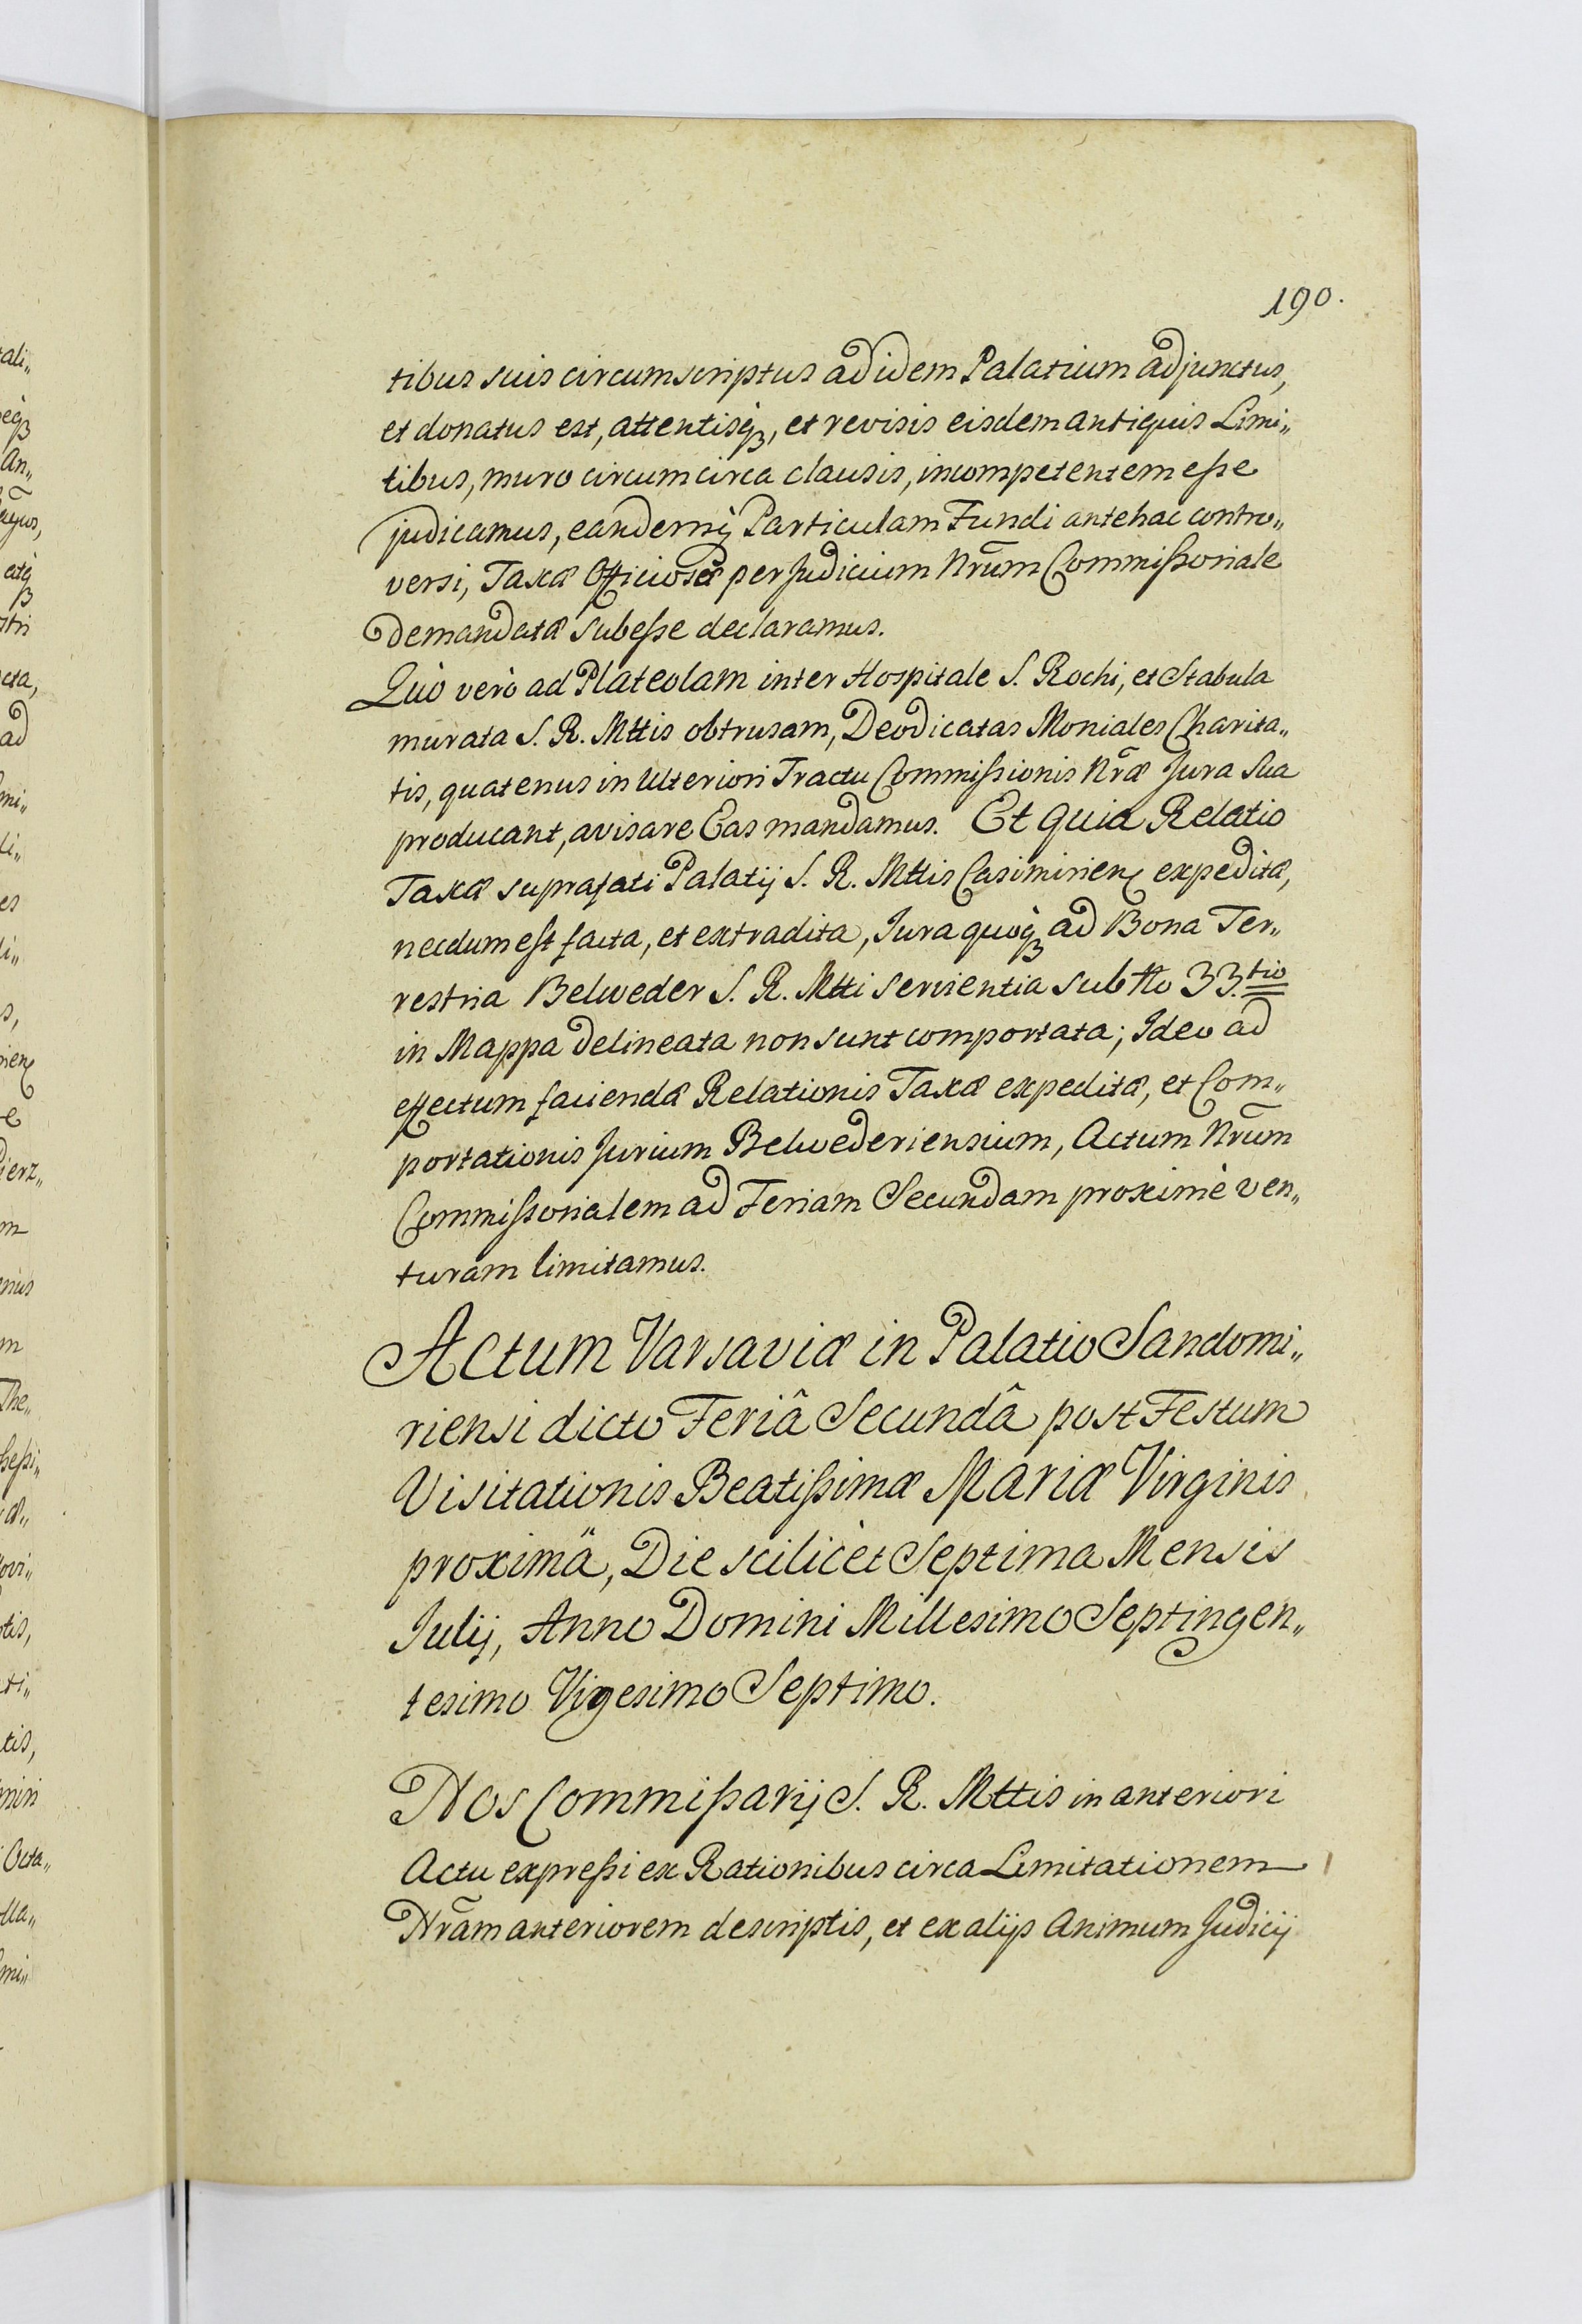 190.
tibus suis circumscriptus ad idem Palatium adjunctus,
et donatus est, attentisq́ꝫ, et revisis eisdem antiquis Limi„
tibus, muro circumcirca clausis, incompetentem eſse
judicamus, eandemq́ Particulam Fundi antehac contro„
versi, Taxæ Officiosæ per Judicium Nrūm Commiſsoriale
demandatæ subeſse declaramus.
Quò verò ad Plateolam inter Hospitale S. Rochi, et Stabula
murata S. R. Mttis obtrusam, Deodicatas Moniales Charita„
tis, quatenus in Ulteriori Tractu Commiſsionis Nrǣ Jura Sua
producant, avisare Eas mandamus. Et quia Relatio
Taxæ suprafati Palatij S. R. Mttis Casimirien expeditæ,
necdum est facta, et extradita, Jura quoq́ꝫ ad Bona Ter„
restria Belweder S. R. Mtti servientia sub No 33.tio
in Mappa delineata non sunt comportata; Ideo ad
effectum faciendæ Relationis Taxæ expeditæ, et Com„
portationis Jurium Belwederiensium, Actum Nrūm
Commiſsorialem ad Feriam Secundam proximè ven„
turam limitamus.
Actum Varsaviæ in Palatio Sandomi„
riensi dicto Feriâ Secundâ post Festum
Visitationis Beatiſsimæ Mariæ Virginis
proximä, Die scilicèt Septima Mensis
Julij, Anno Domini Millesimo Septingen„
tesimo Vigesimo Septimo.
Nos Commiſsarij S. R. Mttis in anteriori
Actu expreſsi ex Rationibus circa Limitationem
Nrām anteriorem descriptis, et ex alijs Animum Judicij